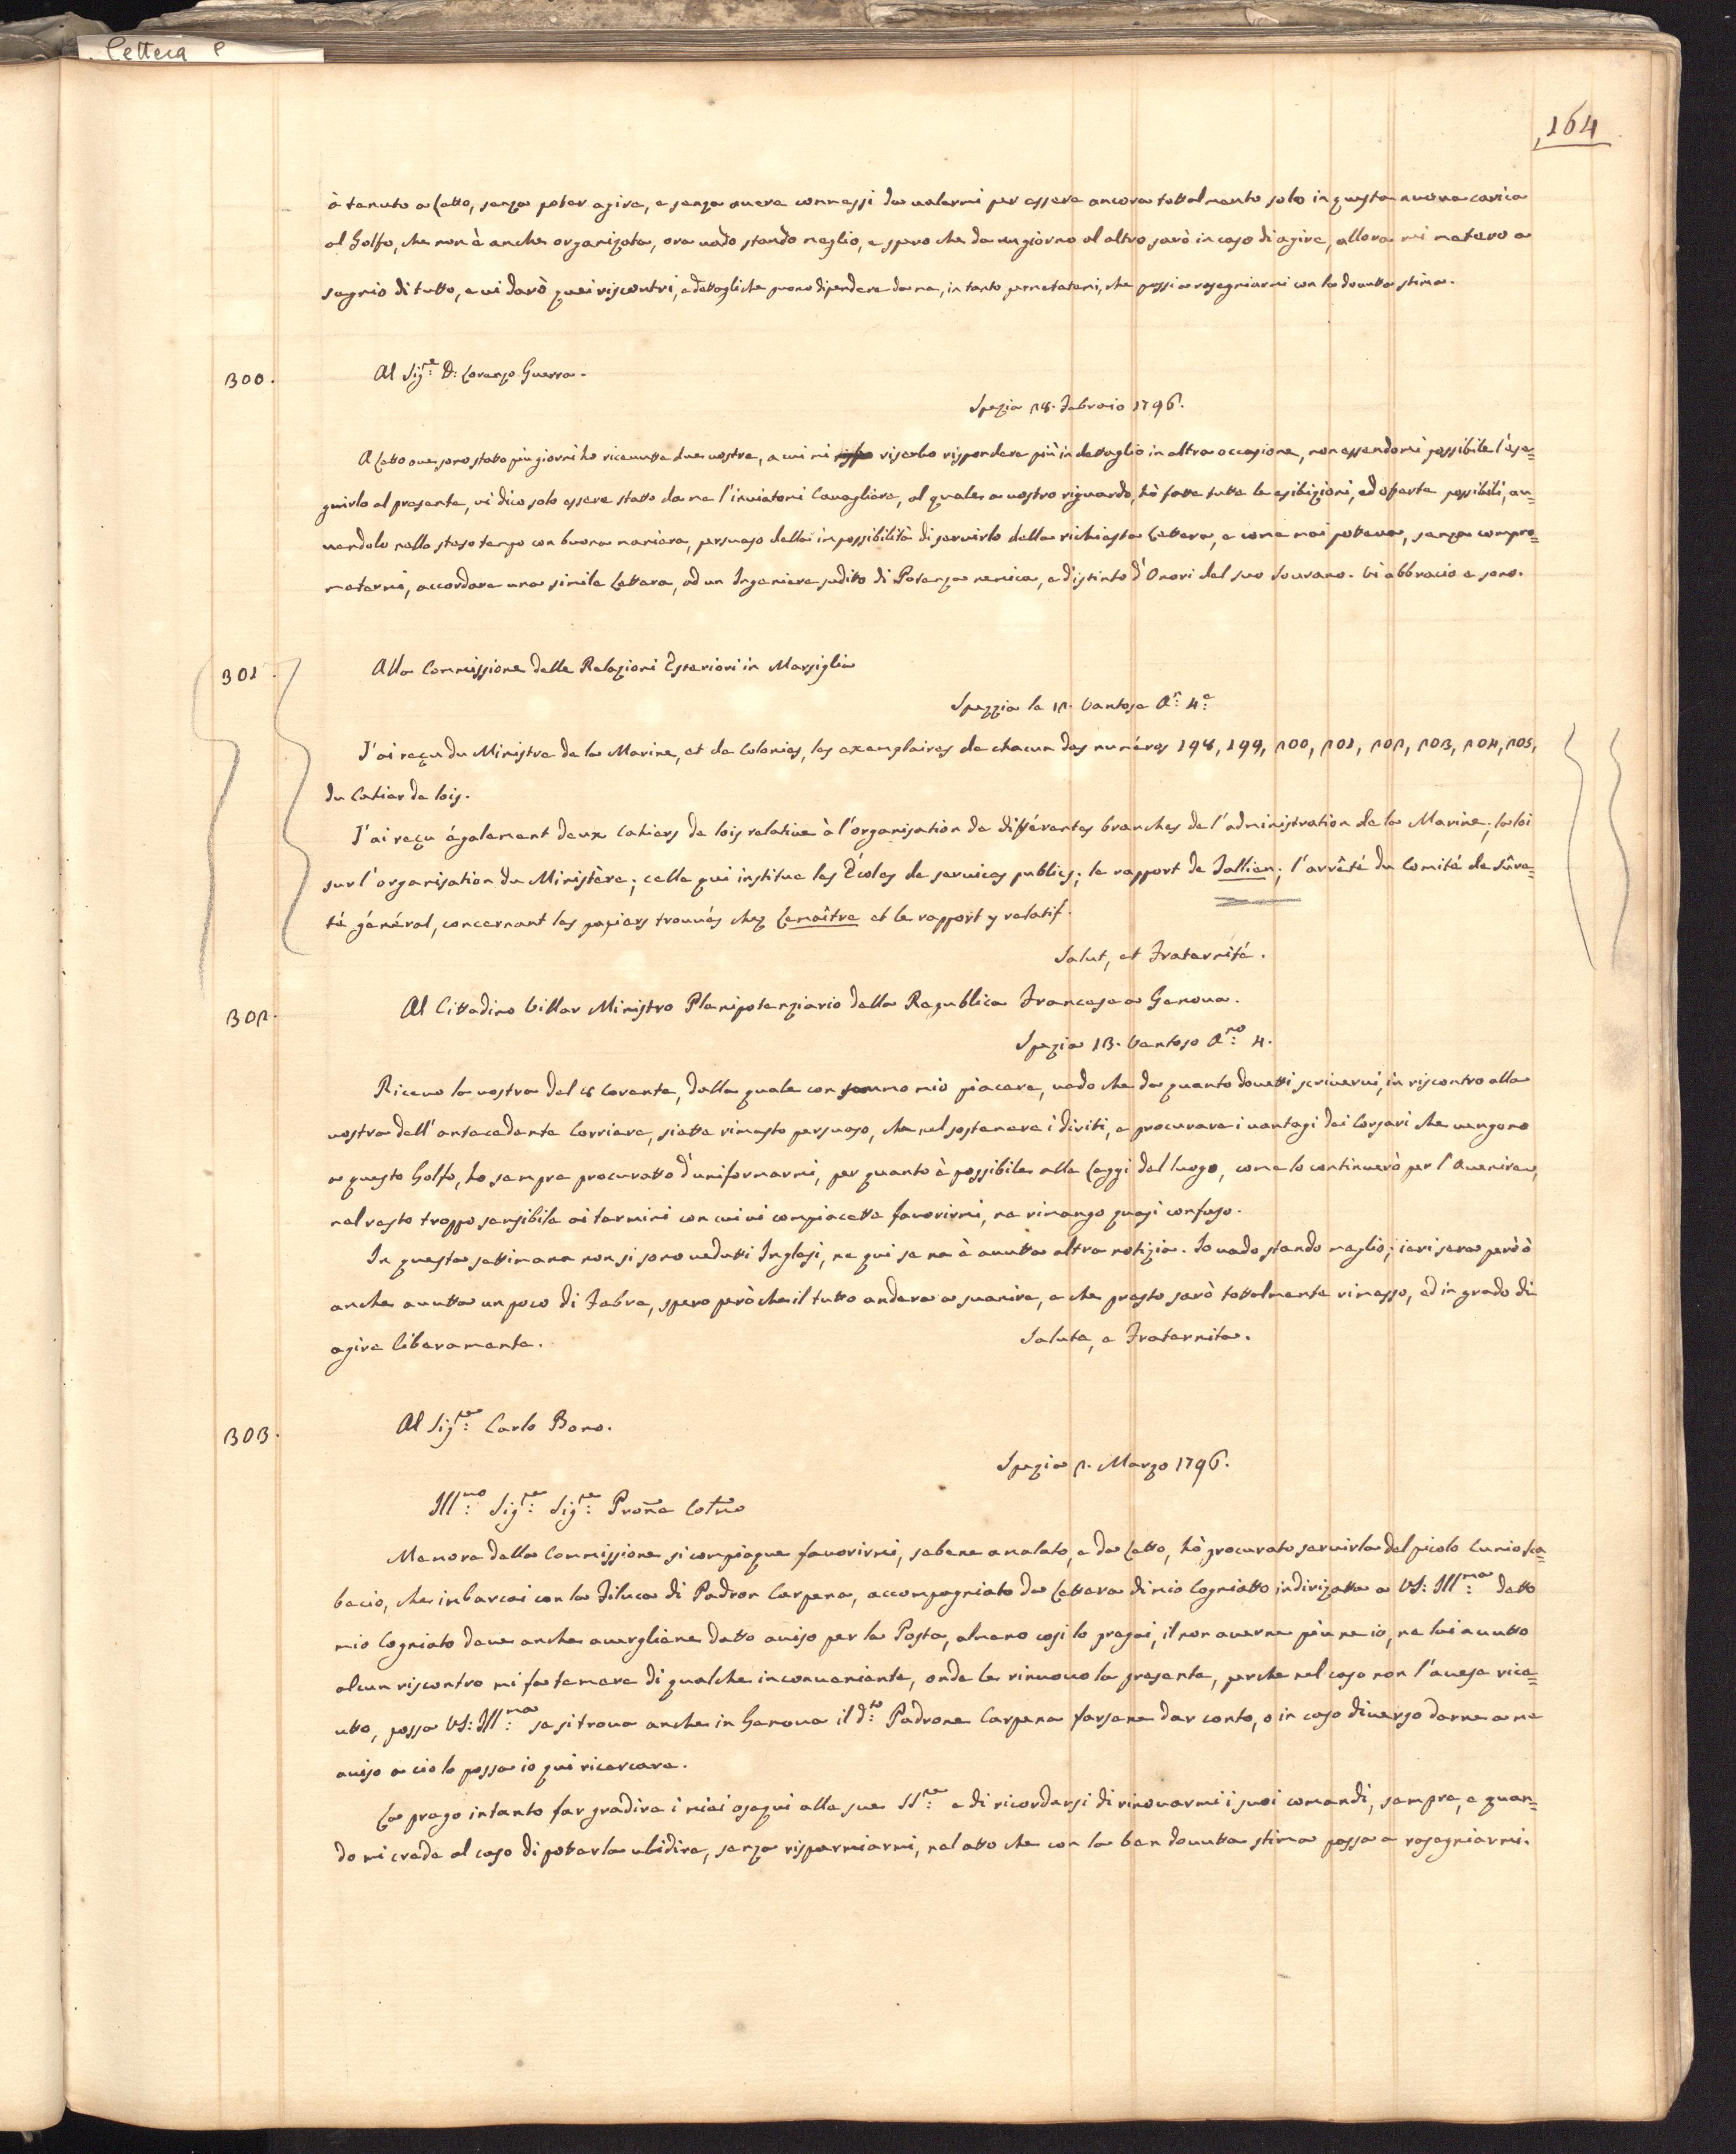 Lettera e
164
à tenuto a Letto, senza poter agire, e senza avere commessi da valermi per essere ancora tottalmente solo in questa nuova carica
al Golfo, che non è anche organizata, ora vado stando meglio, e spero che da un giorno al altro sarò in caso di agire, allora mi metero a
segnio di tutto, e vi darò quei riscontri, e dettagli che puono dipendere da me, in tanto permetetemi, che possi a rasegniarmi con la dovutta stima.
300. Al Sig:re D: Lorenzo Guerra.
Spezia 28. Febraio 1796.
A Letto ove sono statto più giorni ho ricevutte due vostre, a cui mi riserbo rispondere più in dettaglio in altra occasione, non essendomi possibile l'ese=
guirlo al presente, vi dico solo essere statto da me l'inviatomi Cavagliere, al quale a vostro riguardo, hò fatte tutte le esibizioni, ed oferte possibili, au=
vendolo nello steso tempo con buona maniera, persuaso della impossibilità di servirlo della richiesta Lettera, e come mai potteva, senza compro=
metermi, accordare una simile Lettera, ad un Ingeniere sudito di Potenza nemica, e distinto d'Onori del suo Sovrano. Vi abbracio e sono.
301. Alla Commissione delle Relazioni Esteriori in Marsiglia
Spezzia le 12. Ventose A:n 4:e
J'ai reçu du Ministre de la Marine, et de Colonies, les exemplaires de chacun des numéros 198, 199, 200, 201, 202, 203, 204, 205,
du Cahier de lois.
J'ai reçu également deux Cahiers de lois relative à l'organisation de différentes branches de l'administration de la Marine; la loi
sur l'organisation du Ministère; celle qui institue les Écoles de services publics; le rapport de Tallien; l'arrêté du Comité de Sûre=
té général, concernant les papiers trouvés chez Lemaître et le rapport y relatif.
Salut, et Fraternité.
302. Al Cittadino Villar Ministro Plenipotenziario della Republica Francese a Genova.
Spezia 13. Ventoso A:no 4.
Ricevo la vostra del 8 Corente, dalla quale con sommo mio piacere, vedo che da quanto dovetti scrivervi, in riscontro alla
vostra dell'antecedente Corriere, siette rimasto persuaso, che nel sostenere i diriti, e procurare i vantagi dei Corsari che vengono
a questo Golfo, ho sempre procuratto d'uniformarmi, per quanto è possibile alle Leggi del luogo, come lo continuerò per l'Avenire,
nel resto troppo sensibile ai termini con cui vi compiacette favorirmi, ne rimango quasi confuso.
In questa settimana non si sono vedutti Inglesi, ne qui se ne è avutta altra notizia. Io vado stando meglio; ieri sera però ò
anche avutta un poco di Febre, spero però che il tutto andera a svanire, e che presto sarò tottalmente rimesso, ed in grado di
agire liberamente. Salute, e Fraternita.
303. Al Sig:re Carlo Bono.
Spezia 2. Marzo 1796.
Ill:mo Sig:re Sig:re Prone Cotmo
Memore della Commissione si compiaque favorirmi, sebene amalato, e da Letto, hò procurato servirla del picolo Cunio sca=
becio, che imbarcai con la Filuca di Padron Carpena, accompagniato da Lettera di mio Cogniatto indirizatta a VS: Ill:ma detto
mio Cogniato deve anche avergliene datto aviso per la Posta, almeno cosi lo pregai, il non averne più ne io, ne lui avutto
alcun riscontro mi fa temere di qualche inconveniente, onde le rinuovo la presente, perche nel caso non l'avese rice=
utto, possa VS: Ill:ma se si trova anche in Genova il d:to Padrone Carpena farsene dar conto, o in caso diverso darne a me
aviso a cio lo possa io qui ricercare.
La prego intanto far gradire i miei osequi alle sue SS:re e di ricordarsi di rinovarmi i suoi comandi, sempre, e quan=
do mi crede al caso di potterla ubidire, senza risparmiarmi, nel atto che con la ben dovutta stima passo a rasegniarmi.